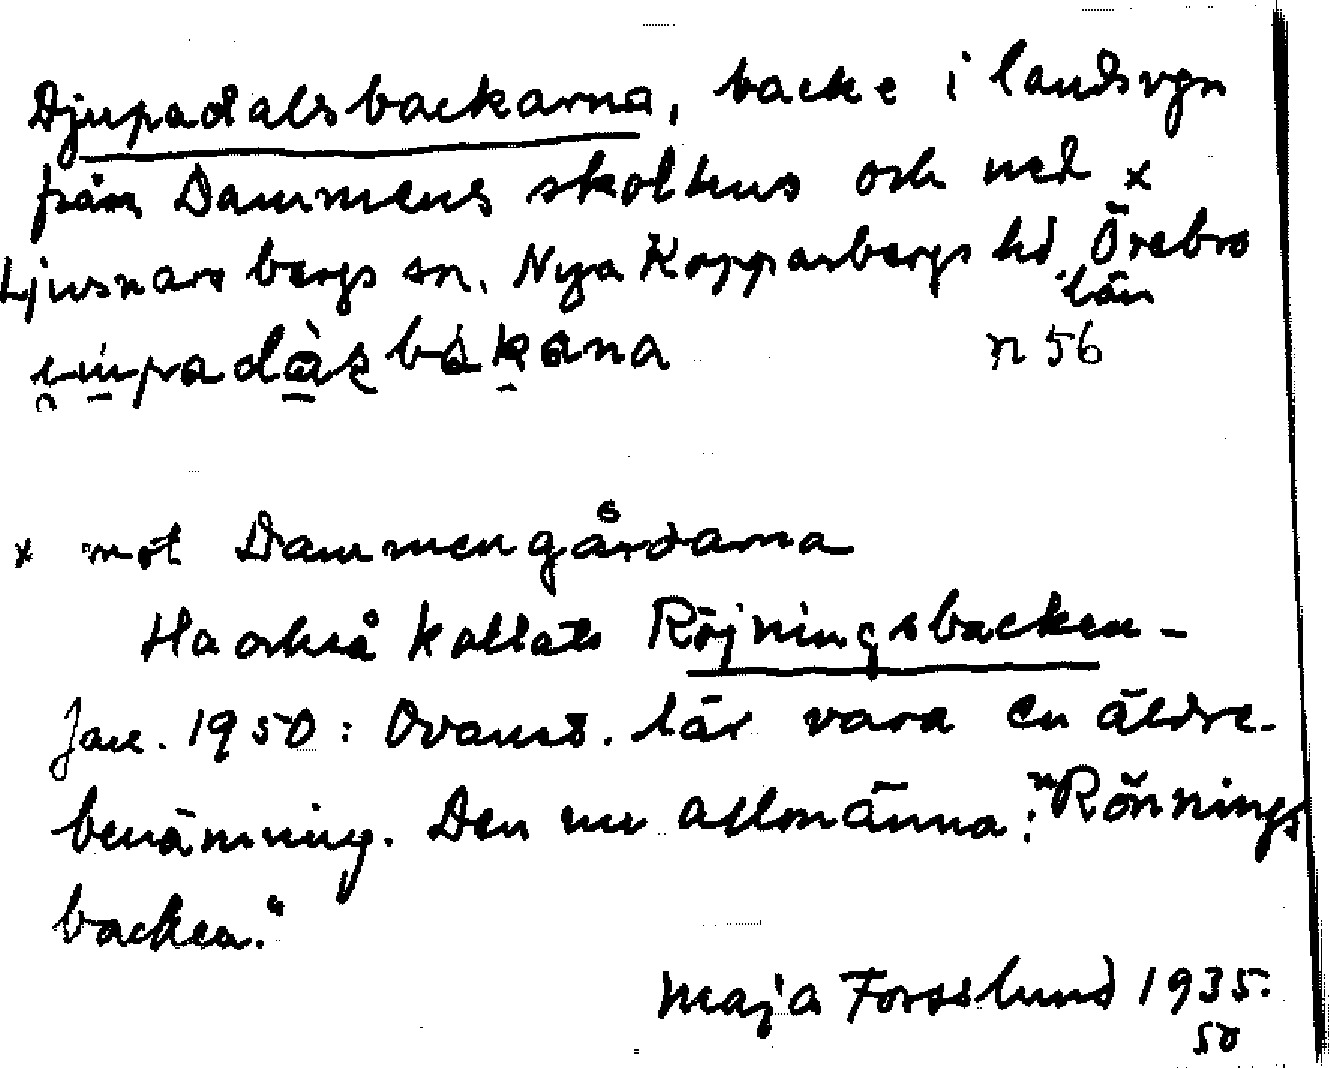 Djupadalsbackarna, backe i landsvgn
från Dammens skolhus och ned x
Ljusnarsbergs sn, Nya Kopparbergs hd Örebro
län
n 56
x mot Dammengårdarna
Ha också kallats Röjningsbacken -
Jan. 1950: Ovanst. lär vara en äldre
benämning. Den nu allmänna: "Rönnings
backen."
Maja Forsslund 1935.
50